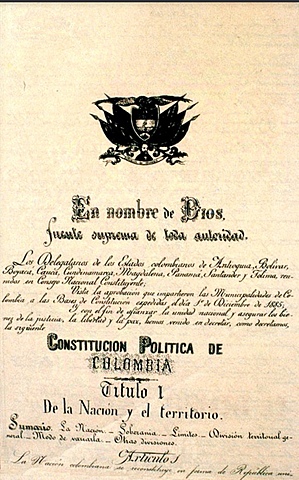 En nombre de Dios,
fuente suprema de toda autoridad.
Los Delegatarios de los Estados colombianos de Antioquia, Bolívar,
Boyacá, Cauca, Cundinamarca, Magdalena, Panamá, Santander y Tolima, reu-
nidos en Consejo Nacional Constituyente;
Vista la aprobación que impartieron las Municipalidades de Co-
lombia a las Bases de Constitución expedidas el día 1º de Diciembre de 1885;
Y con el fin de afianzar la unidad nacional y asegurar los bie-
nes de la justicia, la libertad y la paz, hemos venido en decretar, como decretamos,
la siguiente
CONSTITUCIÓN POLÍTICA DE
COLOMBIA
Título 1
De la Nación y el territorio.
Sumario. La Nación – Soberanía – Límites – División territorial ge-
neral – Modo de variarla – Otras divisiones.
Artículo 1
La Nación colombiana se reconstituye en forma de República uni-